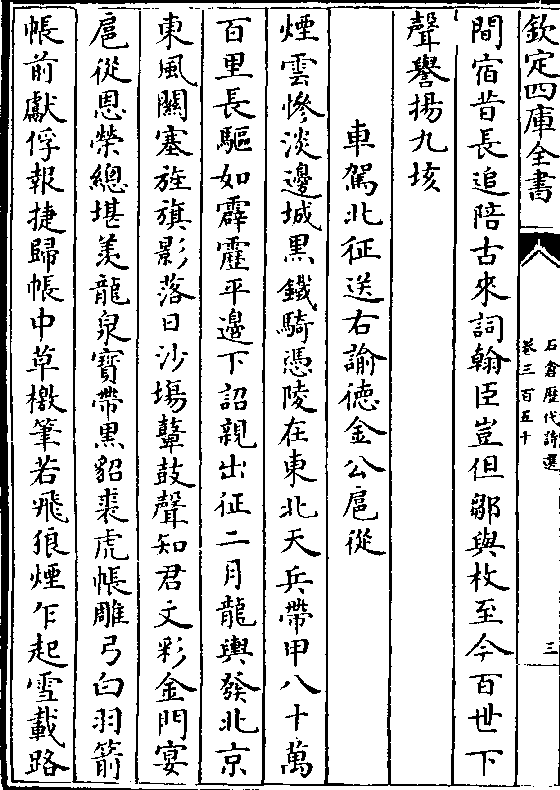 欽定四庫全書
石倉歷代詩選
卷三百五十
三
間宿昔長追陪古來詞翰臣豈但鄒與枚至今百世下
聲譽揚九垓
車駕北征送右諭徳金公扈從
煙雲慘淡邊城黒鐵騎憑陵在東北天兵帶甲八十萬
百里長驅如霹靂平邊下詔親出征二月龍輿發北京
東風關塞旌旗影落日沙塲鼙鼓聲知君文彩金門宴
扈從恩榮總堪羡龍泉寳帶黒貂裘虎帳雕弓白羽箭
帳前獻俘報捷歸帳中草檄筆若飛狼煙乍起雪載路